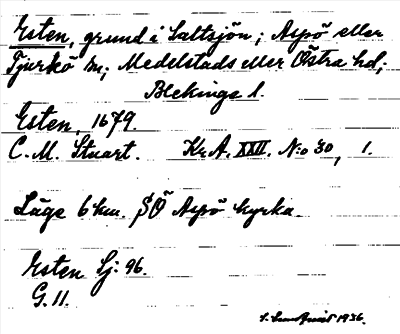 Esten, grund i Saltsjön; Aspö eller
Tjurkö sn; Medelstads eller Östra hd;
Blekinge l.
Esten, 1679.
C. M. Stuart. Kr.A. XXII. N:o 30, 1.
Läge 6 km. SÖ Aspö kyrka.
Esten Sj. 96.
G. 11.
1936.